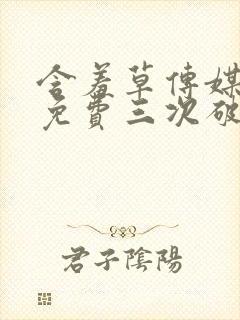 含羞草傳媒
免費三次破
君子陰陽